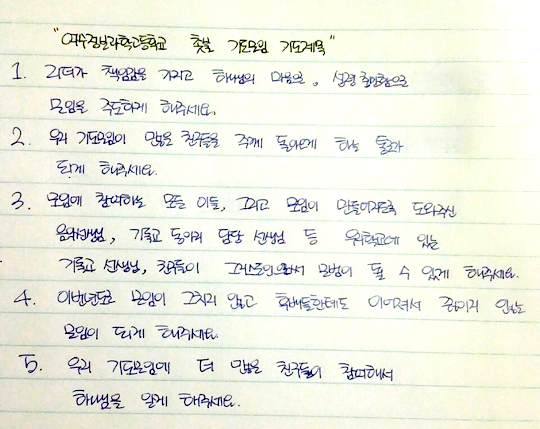 "여수정보과학고등학교 촛불 기도모임 기도제목"
1. 리더가 책임감을 가지고 하나님의 마음으로, 성령충만함으로
모임을 주도하게 해주세요.
2. 우리 기도모임이 많은 친구들을 주께 돌아오게 하는 통로가
되게 해주세요.
3. 모임에 참여하는 모든 이들, 그리고 모임이 만들어지도록 도와주신
음악선생님, 기독교 동아리 담당 선생님 등 우리학교에 있는
기독교 선생님, 친구들이 그리스도인으로서 모범이 될 수 있게 해주세요.
4. 이번년도로 모임이 그치지 않고 후배들한테도 이어져서 끊이지 않는
모임이 되게 해주세요.
5. 우리 기도모임에 더 많은 친구들이 참여해서
하나님을 알게 해주세요.